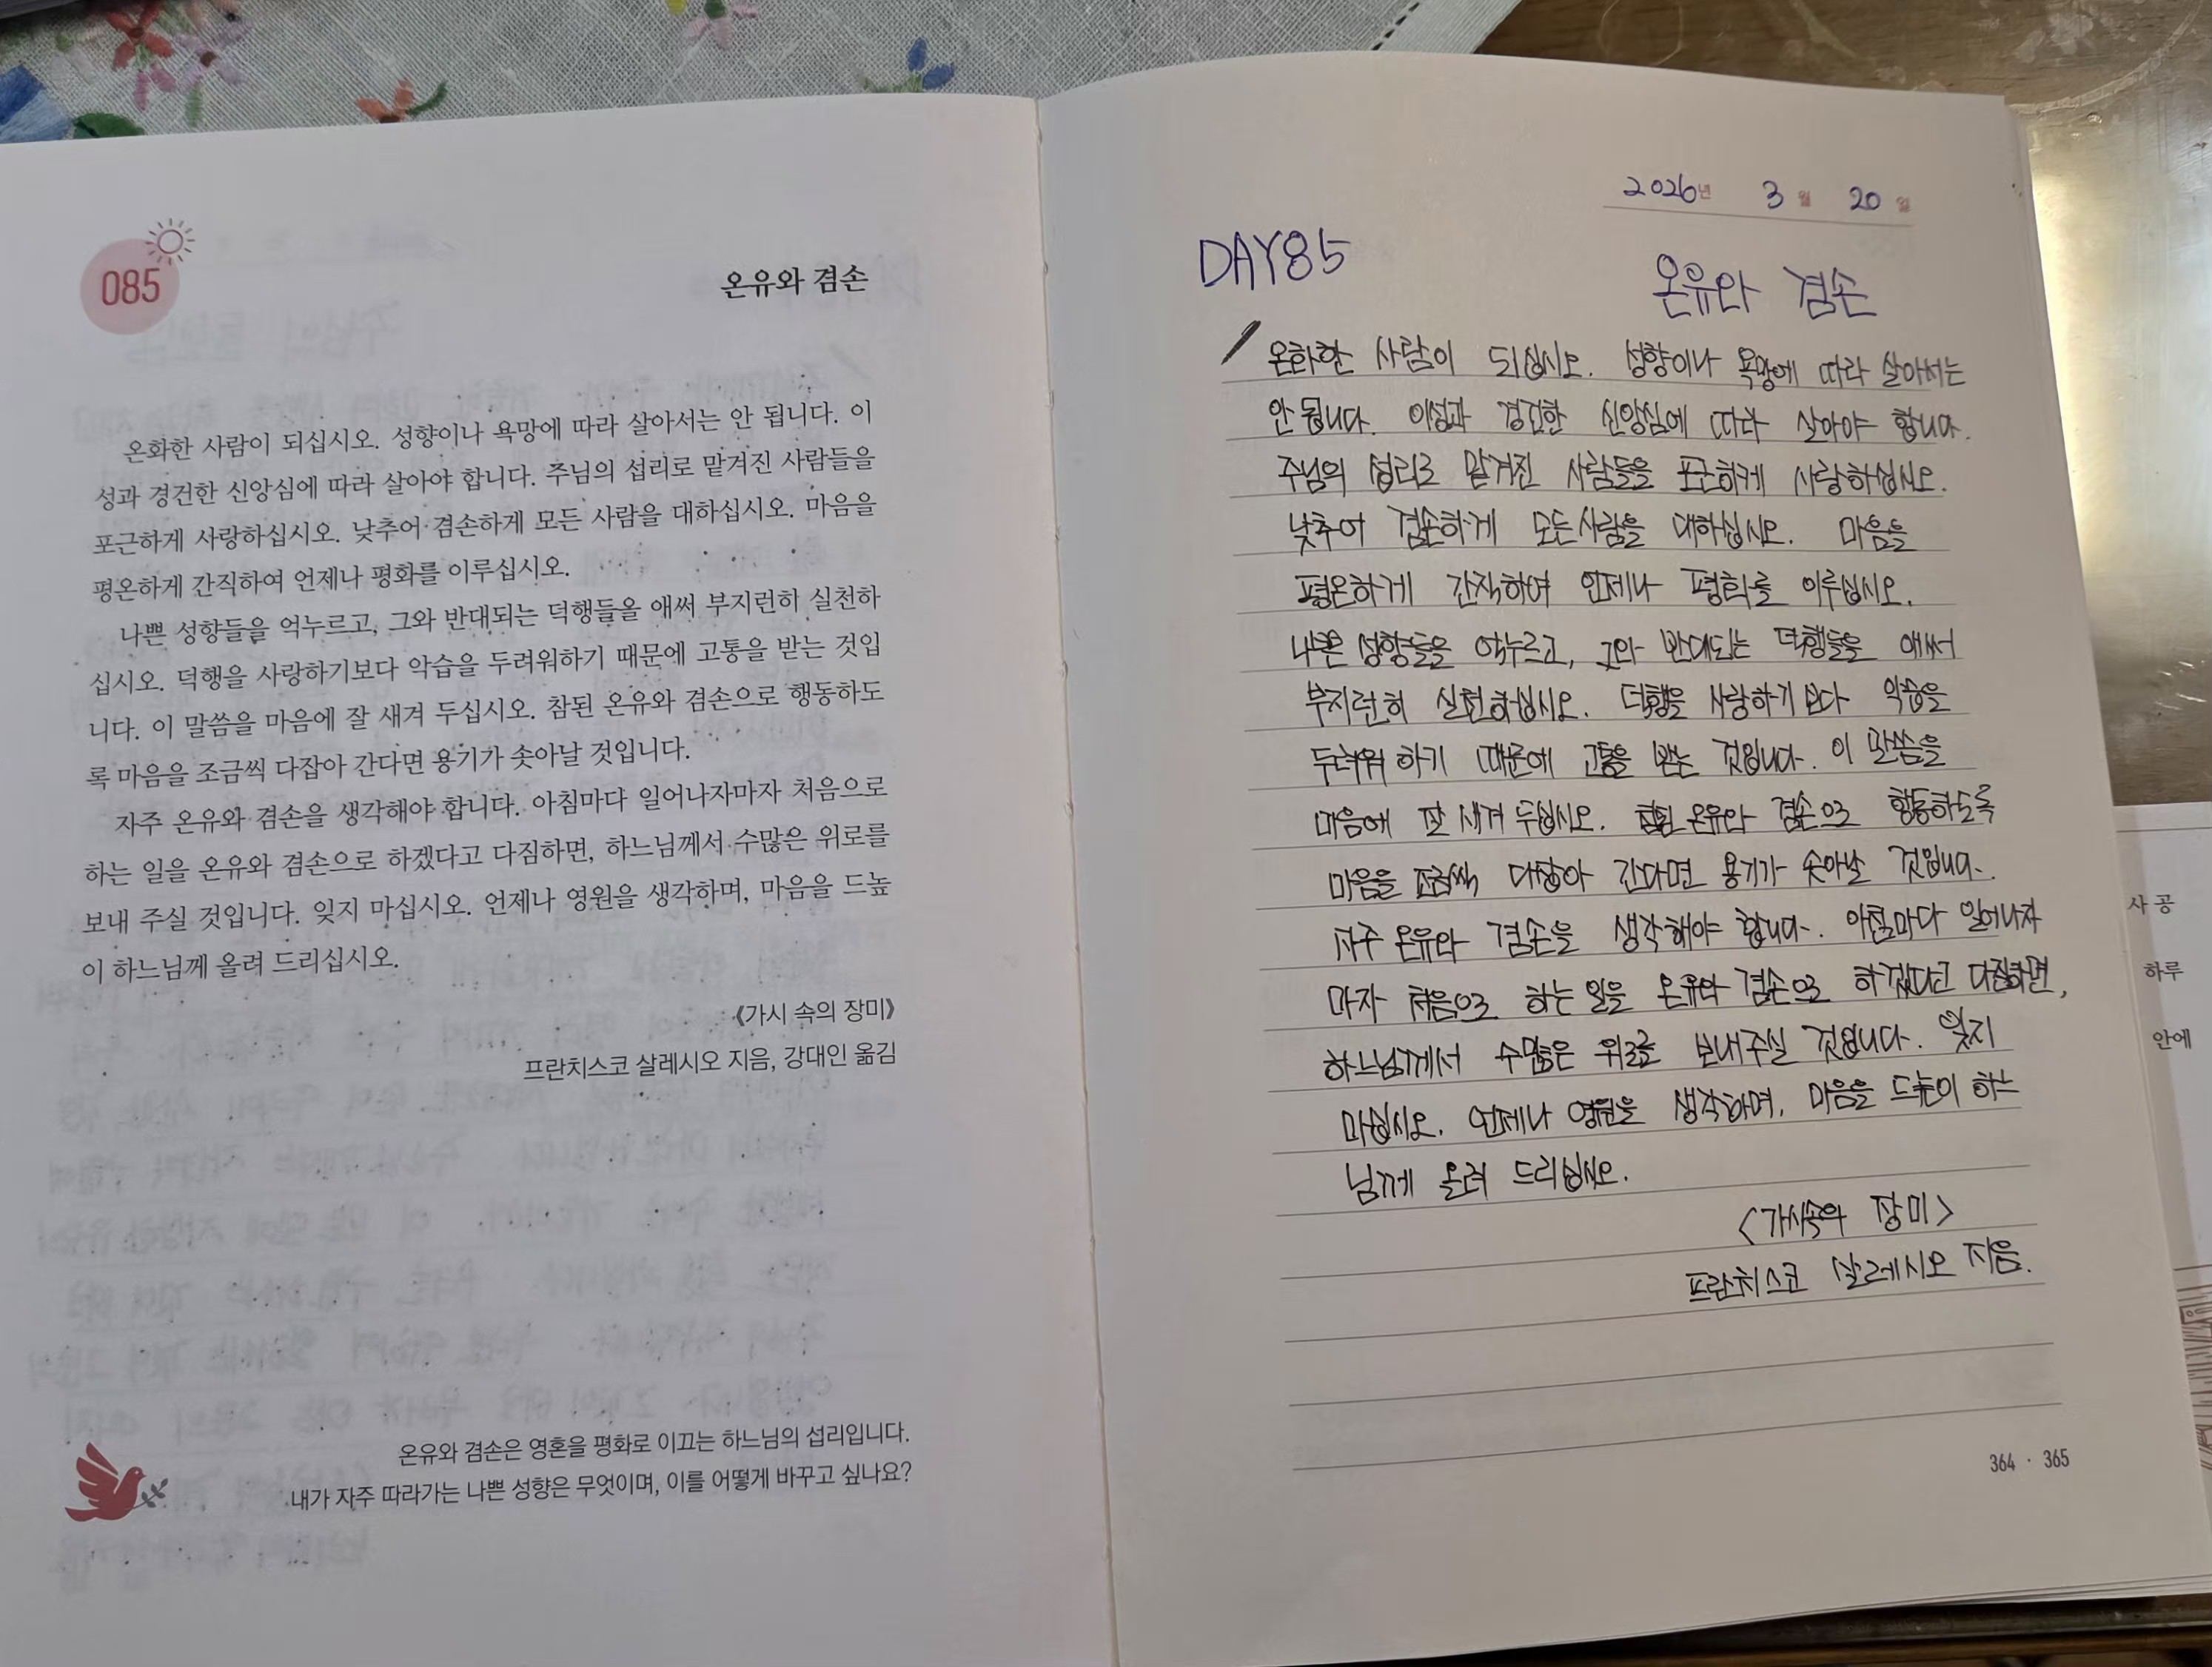 085
온유와 겸손
온화한 사람이 되십시오. 성향이나 욕망에 따라 살아서는 안 됩니다. 이
성과 경건한 신앙심에 따라 살아야 합니다. 주님의 섭리로 맡겨진 사람들을
포근하게 사랑하십시오. 낮추어 겸손하게 모든 사람을 대하십시오. 마음을
평온하게 간직하여 언제나 평화를 이루십시오.
나쁜 성향들을 억누르고, 그와 반대되는 덕행들올 애써 부지런히 실천하
십시오. 덕행을 사랑하기보다 악습을 두려워하기 때문에 고통을 받는 것입
니다. 이 말씀을 마음에 잘 새겨 두십시오. 참된 온유와 겸손으로 행동하도
록 마음을 조금씩 다잡아 간다면 용기가 솟아날 것입니다.
자주 온유와 겸손을 생각해야 합니다. 아침마다 일어나자마자 처음으로
하는 일을 온유와 겸손으로 하겠다고 다짐하면, 하느님께서 수많은 위로를
보내 주실 것입니다. 잊지 마십시오. 언제나 영원을 생각하며, 마음을 드높
이 하느님께 올려 드리십시오.
《가시 속의 장미》
프란치스코 살레시오 지음, 강대인 옮김
온유와 겸손은 영혼을 평화로 이끄는 하느님의 섭리입니다.
내가 자주 따라가는 나쁜 성향은 무엇이며, 이를 어떻게 바꾸고 싶나요?
2026년 3월 20일
DAY85
온유와 겸손
온화한 사람이 되십시오. 성향이나 욕망에 따라 살아서는
안 됩니다. 이성과 경건한 신앙심에 따라 살아야 합니다.
주님의 섭리로 맡겨진 사람들을 포근하게 사랑하십시오.
낮추어 겸손하게 모든 사람을 대하십시오. 마음을
평온하게 간직하여 언제나 평화를 이루십시오.
나쁜 성향들을 억누르고, 그와 반대되는 덕행들을 애써
부지런히 실천하십시오. 덕행을 사랑하기보다 악습을
두려워하기 때문에 고통을 받는 것입니다. 이 말씀을
마음에 잘 새겨 두십시오. 참된 온유와 겸손으로 행동하도록
마음을 조금씩 다잡아 간다면 용기가 솟아날 것입니다.
자주 온유와 겸손을 생각해야 합니다. 아침마다 일어나자
마자 처음으로 하는 일을 온유와 겸손으로 하겠다고 다짐하면,
하느님께서 수많은 위로를 보내주실 것입니다. 잊지
마십시오. 언제나 영원을 생각하며, 마음을 드높이 하느
님께 올려 드리십시오.
<가시속의 장미>
프란치스코 살레시오 지음.
364 · 365
사 공
하루
안에